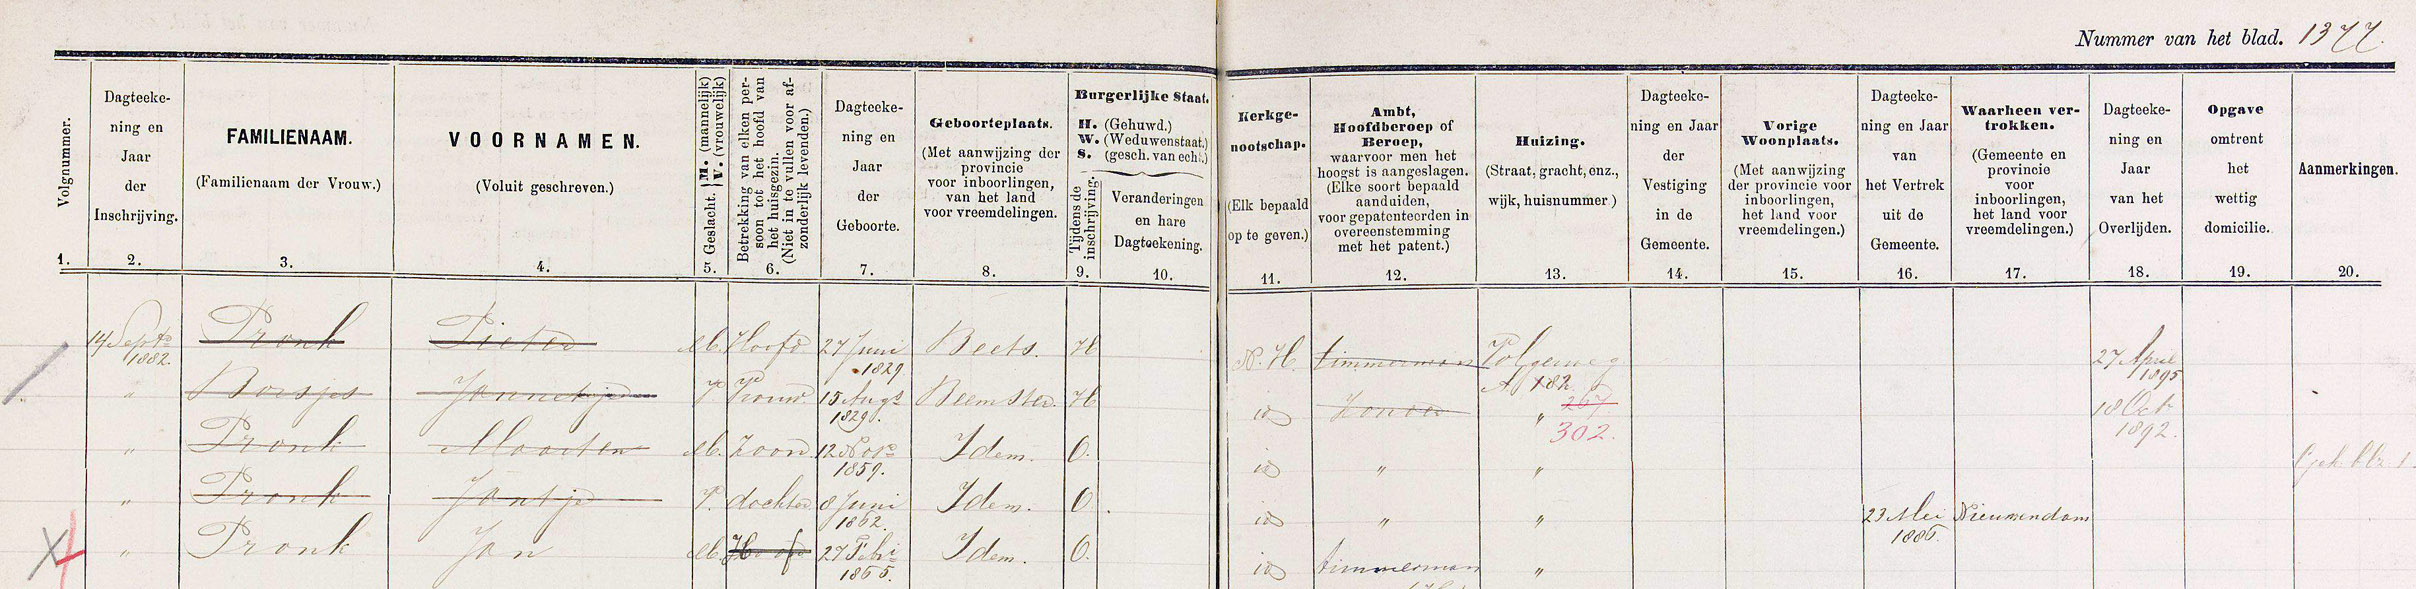 Nummer van het blad. 1377.
Volgnummer.
1.
Dagteeke-
ning en
Jaar
der
Inschrijving.
2.
FAMILIENAAM.
(Familienaam der Vrouw.)
3.
VOORNAMEN.
(Voluit geschreven.)
4.
Geslacht. { M. (mannelijk)
V. (vrouwelijk)
5.
Betrekking van elken per-
soon tot het hoofd van
het huisgezin.
(Niet in te vullen voor af-
zonderlijk levenden.)
6.
Dagteeke-
ning en
Jaar
der
Geboorte.
7.
Geboorteplaats.
(Met aanwijzing der
provincie
voor inboorlingen,
van het land
voor vreemdelingen.
8.
Burgerlijke Staat.
H. (Gehuwd.)
W. (Weduwenstaat.)
S. (gesch. van echt.)
Tijdens de
inschrijving.
9.
Veranderingen
en hare
Dagteekening.
10.
Kerkge-
nootschap.
(Elk bepaald
op te geven.)
11.
Ambt,
Hoofdberoep of
Beroep,
waarvoor men het
hoogst is aangeslagen.
(Elke soort bepaald
aanduiden,
voor gepatenteerden in
overeenstemming
met het patent.)
12.
Huizing.
(Straat, gracht, enz.,
wijk, huisnummer)
13.
Dagteeke-
ning en Jaar
der
Vestiging
in de
Gemeente.
14.
Vorige
Woonplaats.
(Met aanwijzing
der provincie voor
inboorlingen,
het land voor
vreemdelingen.)
15.
Dagteeke-
ning en Jaar
van
het Vertrek
uit de
Gemeente.
16.
Waarheen ver-
trokken.
(Gemeente en
provincie
voor
inboorlingen,
het land voor
vreemdelingen.)
17.
Dagteeke-
ning en
Jaar
van het
Overlijden.
18.
Opgave
omtrent
het
wettig
domicilie.
19.
Aanmerkingen.
20.
14 Septr 1882. Pronk Pieter M. Hoofd 27 Juni 1829 Beets. H N.H. timmerman A 182 27 April 1895
" Jannetje V Vrouw. 15 Augt 1829. Beemster. H id Zonder " 267 302. 18 Oct 1892.
" Pronk Maarten M. Zoon 12 Novr 1859. Idem. O. id " "
" Pronk Jantje V. dochter 8 Juni 1862. Idem. O. id " " 23 Mei 1886. Nieuwendam
" Pronk Jan M. Hoofd 27 Feb 1865. Idem. O. id timmerman "